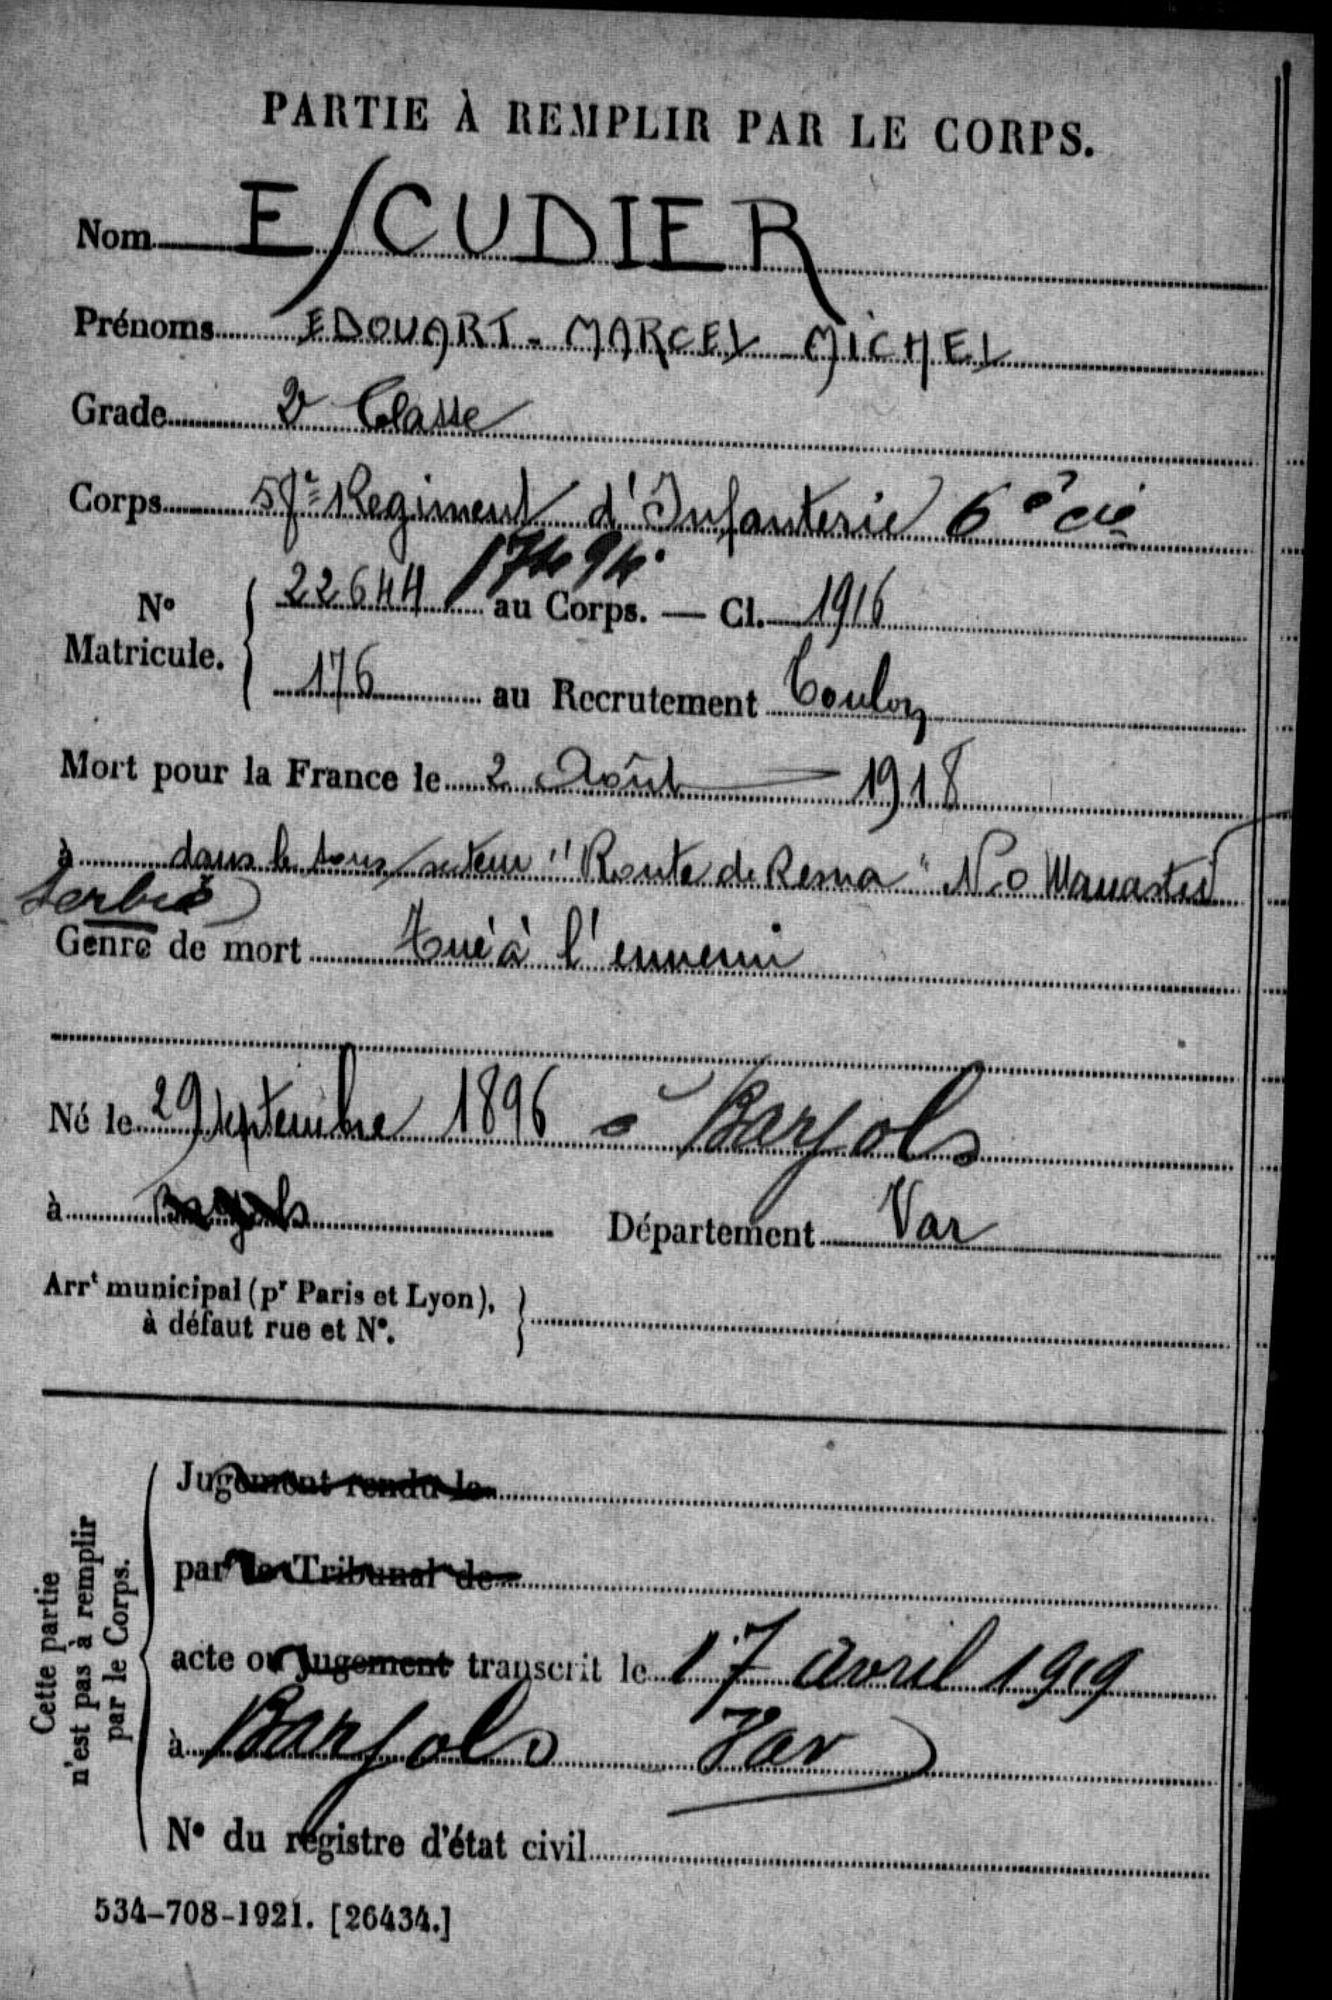 PARTIE À REMPLIR PAR LE CORPS.
Nom ESCUDIER
Prénoms EDOUART - MARCEL MICHEL
Grade 2e Classe
Corps 58e Regiment d'Infanterie 6e cie
17494
N° Matricule. { 22644 au Corps. — Cl. 1916
176 au Recrutement Toulon
Mort pour la France le 2 Août 1918
à dans le sous/secteur "Route de Resna" N.O Monastir
Serbie
Genre de mort Tué à l'ennemi
Né le 29 septembre 1896 à Barjols
à Barjols Département Var
Arrt municipal (pr Paris et Lyon), à défaut rue et N°. }
Cette partie n'est pas à remplir par le Corps.
Jugement rendu le
par le Tribunal de
acte ou jugement transcrit le 17 avril 1919
à Barjols Var
N° du registre d'état civil
534-708-1921. [26434.]